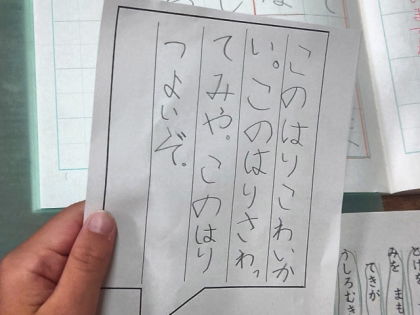 このはりこわいか
い。このはりさわっ
てみや。このはり
つよいぞ。
とげを
みを まも
てきが
うしろむき